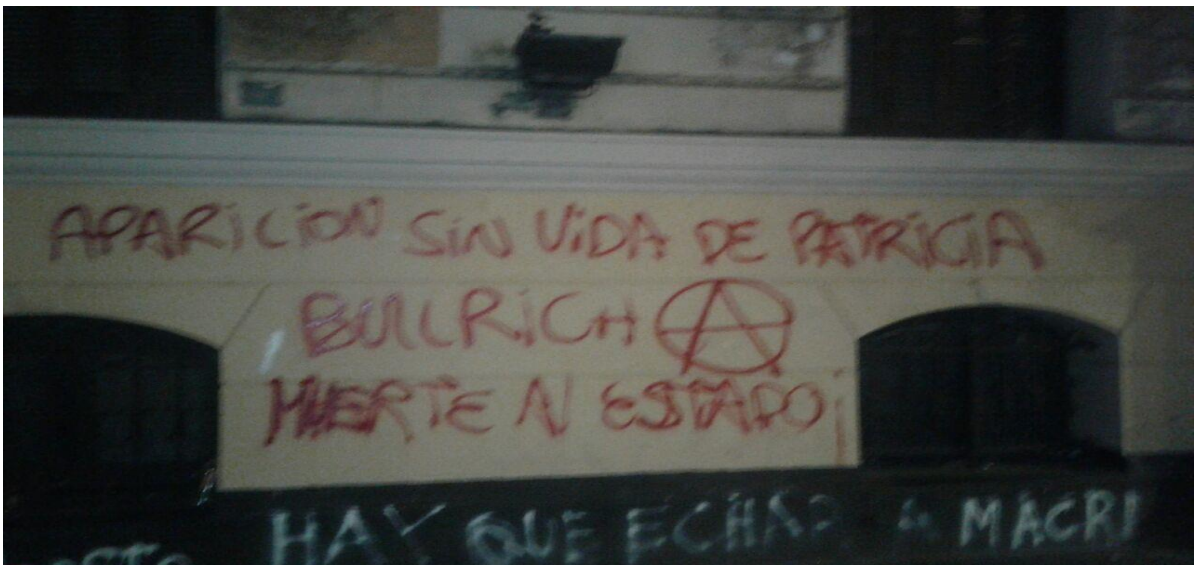 APARiCiON SiN ViDA DE PATRiCiA
BULLRiCH Ⓐ
MUERTE Al ESTADO¡
HAY QUE ECHAR A MACRI